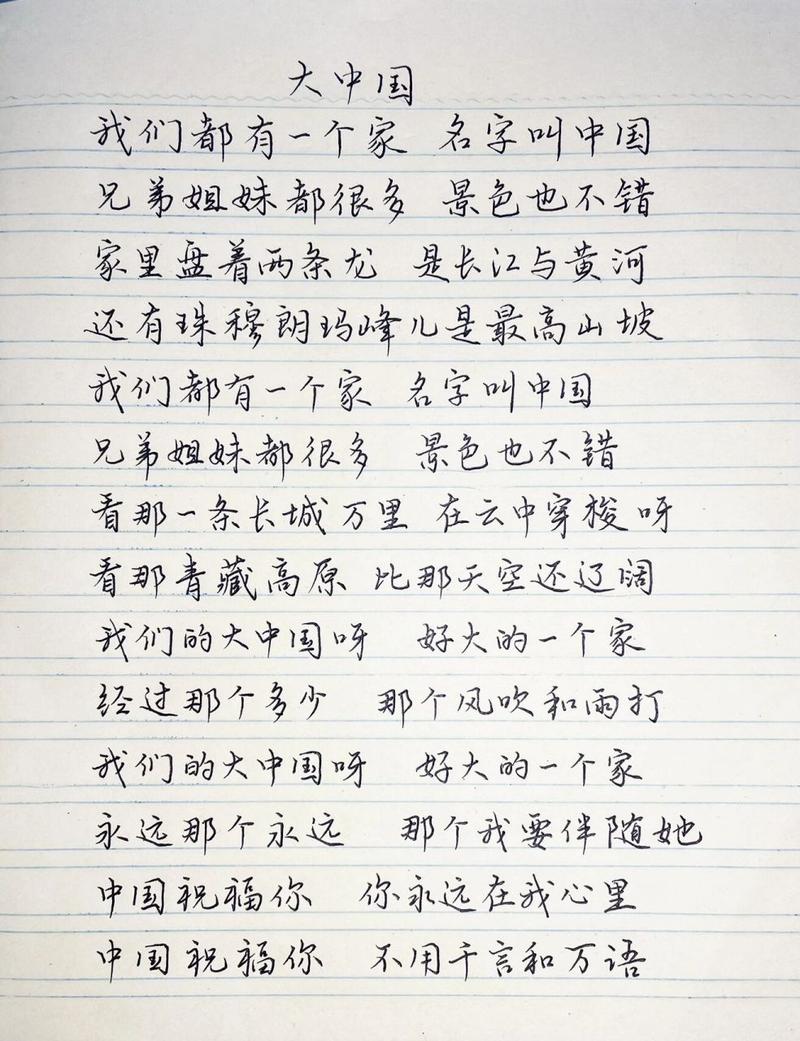 大中国
我们都有一个家 名字叫中国
兄弟姐妹都很多 景色也不错
家里盘着两条龙 是长江与黄河
还有珠穆朗玛峰儿是最高山坡
我们都有一个家 名字叫中国
兄弟姐妹都很多 景色也不错
看那一条长城万里 在云中穿梭呀
看那青藏高原 比那天空还辽阔
我们的大中国呀 好大的一个家
经过那个多少 那个风吹和雨打
我们的大中国呀 好大的一个家
永远那个永远 那个我要伴随她
中国祝福你 你永远在我心里
中国祝福你 不用千言和万语